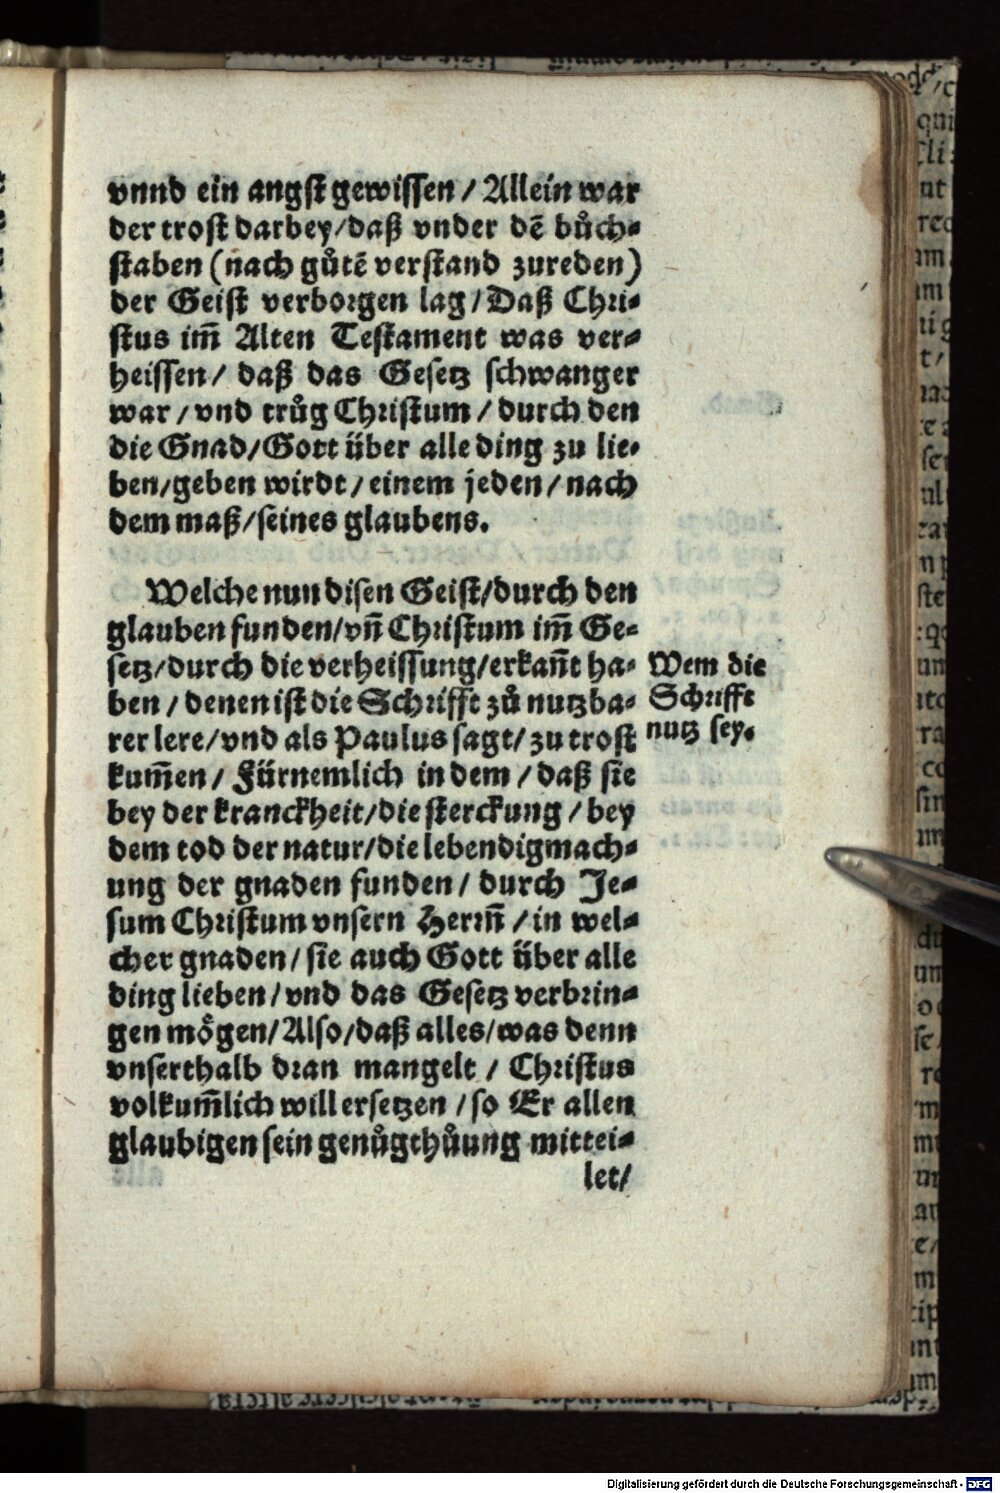 vnnd ein angst gewissen / Allein war
der trost darbey/daß vnder dē bůch⸗
staben (nach gůtē verstand zureden)
der Geist verborgen lag/Daß Chri⸗
stus im̃ Alten Testament was ver⸗
heissen/ daß das Gesetz schwanger
war/vnd trůg Christum/durch den
die Gnad/Gott über alle ding zu lie⸗
ben/geben wirdt/einem jeden/nach
dem maß/seines glaubens.
Welche nun disen Geist/durch den
glauben funden/vñ Christum im̃ Ge⸗
setz/durch die verheissung/erkañt ha⸗
ben/denen ist die Schrifft zů nutzba⸗
rer lere/vnd als Paulus sagt/zu trost
kum̃en/ Fürnemlich in dem/daß sie
bey der kranckheit/die sterckung/bey
dem tod der natur/die lebendigmach⸗
ung der gnaden funden/durch Je⸗
sum Christum vnsern Herrñ/in wel⸗
cher gnaden/sie auch Gott über alle
ding lieben/vnd das Gesetz verbrin⸗
gen mögen/Also/daß alles/was denn
vnserthalb dran mangelt/ Christus
volkum̃lich will ersetzen/so Er allen
glaubigen sein genůgthůung mittei⸗
let/
Wem die
Schrifft
nutz sey.
Digitalisierung gefördert durch die Deutsche Forschungsgemeinschaft - DFG